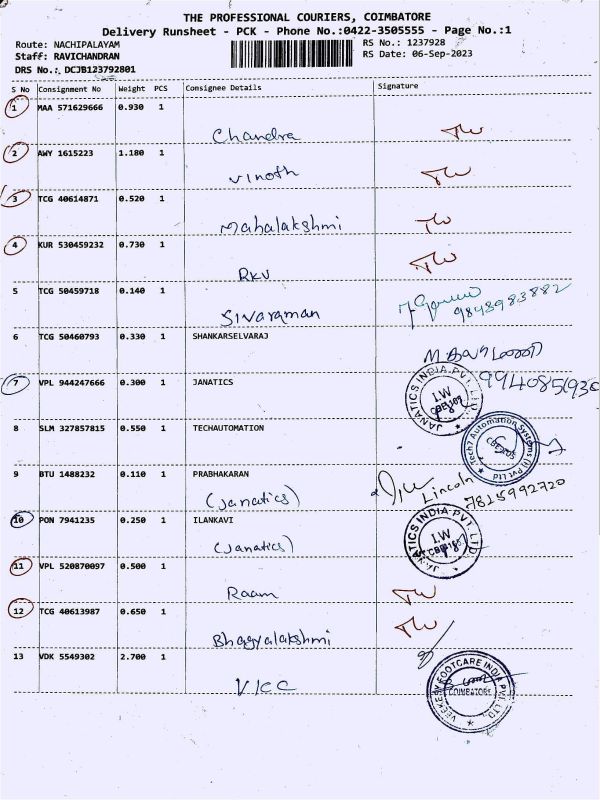 THE PROFESSIONAL COURIERS, COIMBATORE
Delivery Runsheet - PCK - Phone No.:0422-3505555 - Page No.:1
Route: NACHIPALAYAM
RS No.: 1237928
Staff: RAVICHANDRAN
RS Date: 06-Sep-2023
DRS No.: DCJB123792801
S No Consignment No Weight PCS Consignee Details Signature
1 MAA 571629666 0.930 1
Chandra
2 AWY 1615223 1.180 1
Vinoth
3 TCG 40614871 0.520 1
Mahalakshmi
4 KUR 530459232 0.730 1
RKV
5 TCG 50459718 0.140 1
Sivaraman 9848983882
6 TCG 50460793 0.330 1 SHANKARSELVARAJ
7 VPL 944247666 0.300 1 JANATICS
JANATICS INDIA PVT. LTD.
I.W
8 SLM 327857815 0.550 1 TECHAUTOMATION
Tech7 Automation Systems (I) Pvt Ltd
9 BTU 1488232 0.110 1 PRABHAKARAN
(Janatics) Lincoln 7815992720
10 PON 7941235 0.250 1 ILANKAVI
(Janatics)
JANATICS INDIA PVT. LTD
I.W
11 VPL 520870097 0.500 1
Raam
12 TCG 40613987 0.650 1
Bhagyalakshmi
13 VDK 5549302 2.700 1
VKC
VEEKESY FOOTCARE INDIA PVT. LTD.
COIMBATORE